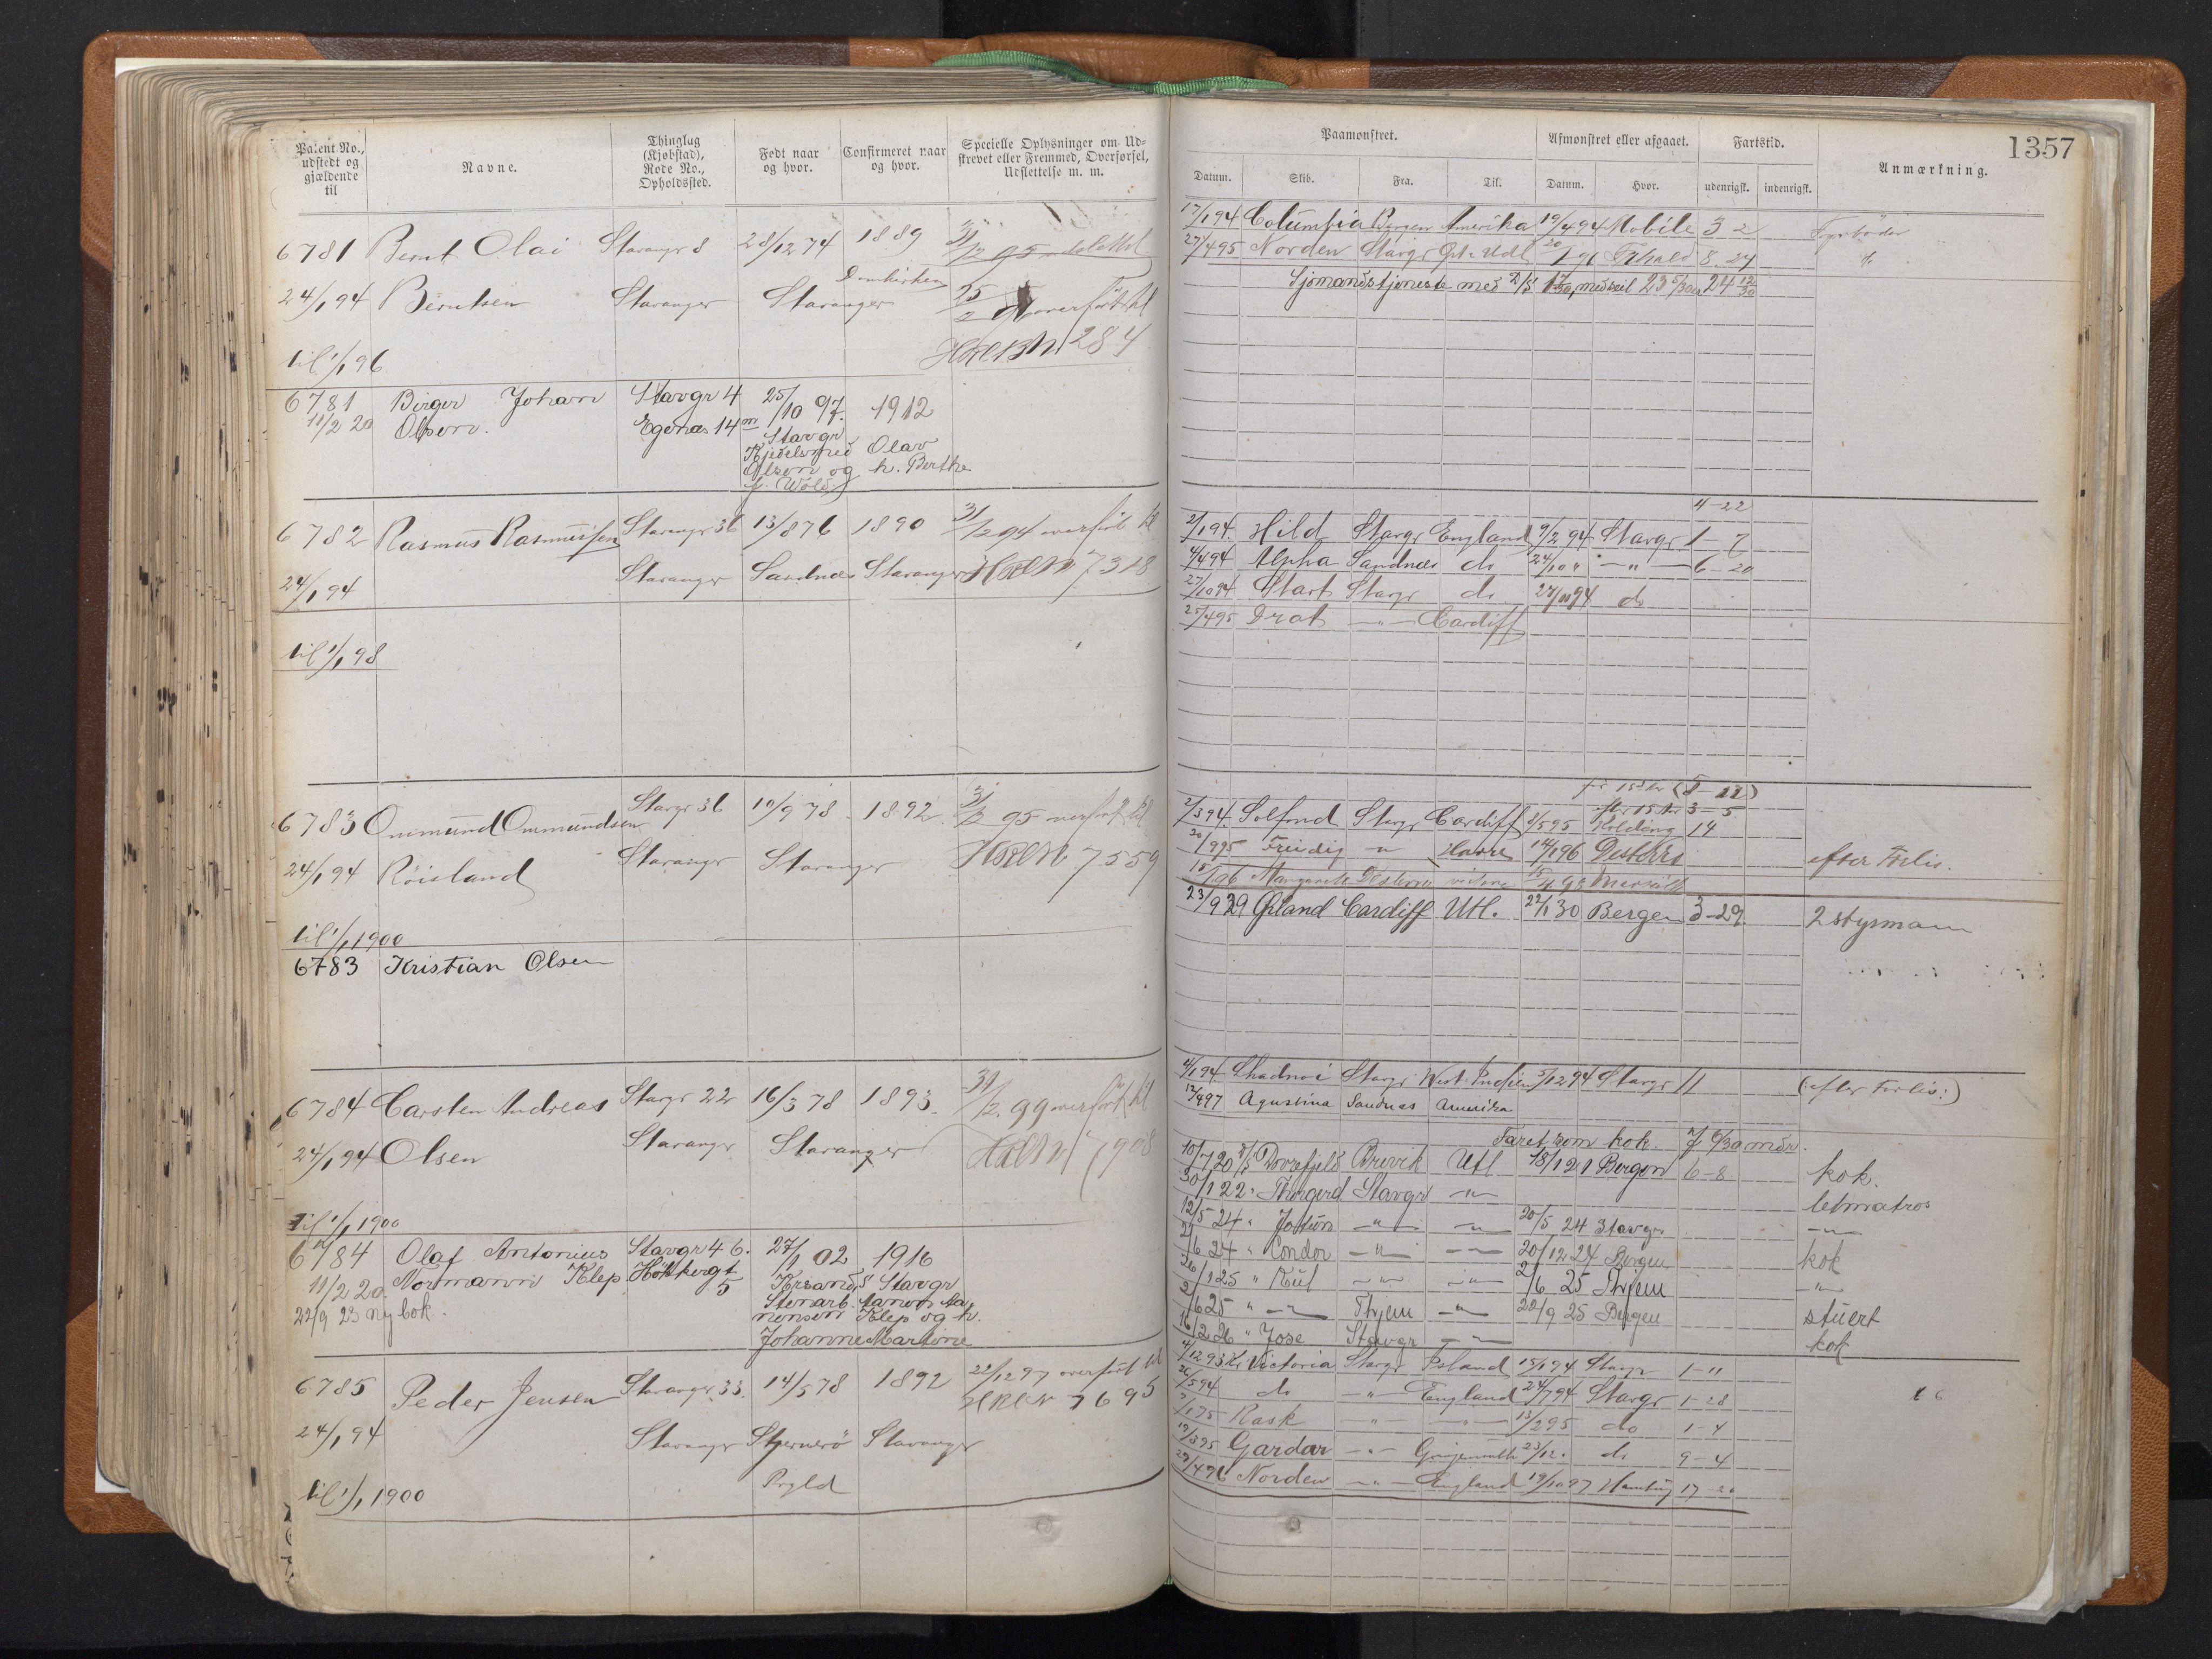 Patent No., udstedt og gjældende til
Navne.
Thinglag (Kjøbstad), Rode No., Opholdssted.
Født naar og hvor.
Confirmeret naar og hvor.
Specielle Oplysninger om Udskrevet eller Fremmed, Overførsel, Udslettelse m. m.
6781 Bernt Olai Stavanger 8 28/12 74 1889 31/12 95 udslettet
Domkirken
24/1 94 Berntsen Stavanger Stavanger overført til
til 1/1 96 284
6781 Birger Johan Stavgr 4 25/10 97. 1912
11/2 20 Olsen. Egenes 14 Stavgr
Kjedelsmed Olav
Olsen og h. Berthe
f. Wold
6782 Rasmus Rasmussen Stavanger 36 13/8 76 1890 31/12 94 overført til
24/1 94 Stavanger Sandnæs Stavanger 7318
til 1/1 98
6783 Ommund Ommundsen Stavgr 36 10/9 78 1892 31/12 95 overført til
24/1 94 Röisland Stavanger Stavanger 7559
til 1/1 1900
6783 Kristian Olsen
6784 Carsten Andreas Stavgr 22 16/3 78 1893. 31/12 99 overført til
24/1 94 Olsen Stavanger Stavanger 7908
til 1/1 1900
6784 Olaf Antonius Stavgr 46. 27/1 02 1916
11/2 20 Normann Klep 5 Krsand S Stavgr
22/9 23 ny bok. Stenarb.
Klep og h.
Johanne Martine
6785 Peder Jensen Stavanger 33. 14/5 78 1892 22/12 97 overført til
7695
24/1 94 Stavanger Stjernerö Stavanger
til 1/1 1900 Ryfld
1357
Paamonstret.
Afmonstret eller afgaaet.
Fartstid.
Anmærkning.
Datum. Skib. Fra. Til. Datum. Hvor. udenrigsk. indenrigsk.
17/1 94 Columbia Bergen Amerika 19/4 94 Mobile 3 2 Fyrböder
27/4 95 Norden Stavgr 8 27
Sjømandstjeneste med
4-22
2/1 94. Hild Stavgr England 9/2 94 Stavgr 1-7
4/4 94 Alpha Sandnæs do 24/10 " - " - 6-20
27/10 94 Start Stavgr do 27/11 94 do
25/4 95 Drot - " - Cardiff
2/3 94. Solfond Stavgr Cardiff 5 95 Kolding 14
20/9 95 Freidig " Havre 14/1 96 efter Forlis.
Margarete
23/9 29 Ørland Cardiff Utl. 22/1 30 Bergen 3-29. 2 styrmann
4/1 94 Stavgr West Indien 3/12 94 Stavgr 11 (efter Forlis:)
13/4 97 Agustina Sandnæs Amerika
Faret som kok. 7 6/30 mdr.
10/7 20 Dovrefjeld Brevik Utl 18/1 21 Bergen 6-8 kok.
30/1 22 " Thorgerd Stavgr - " - letmatros
12/5 24 " - " - - " - 20/5 24 Stavgr - " -
2/6 24 " Condor - " - - " - 20/12 24 Bergen kok
26/1 25 " - " - - " - 2/6 25 Thjem - " -
2/6 25 " - " - Thjem - " - 22/9 25 Bergen stuert
16/2 26 " Jose Stavgr - " - kok
4/12 93 Victoria Stavgr Island 15/1 94 Stavgr 1-11
26/5 94 do - " - England 24/7 94 Stavgr 1-28
Rask - " - - " - 13/2 95 do 1-4
19/3 95 Gardar - " - 23/12 do 9-4
29/4 96 Norden - " - England 19/10 97 Hamburg 17-20